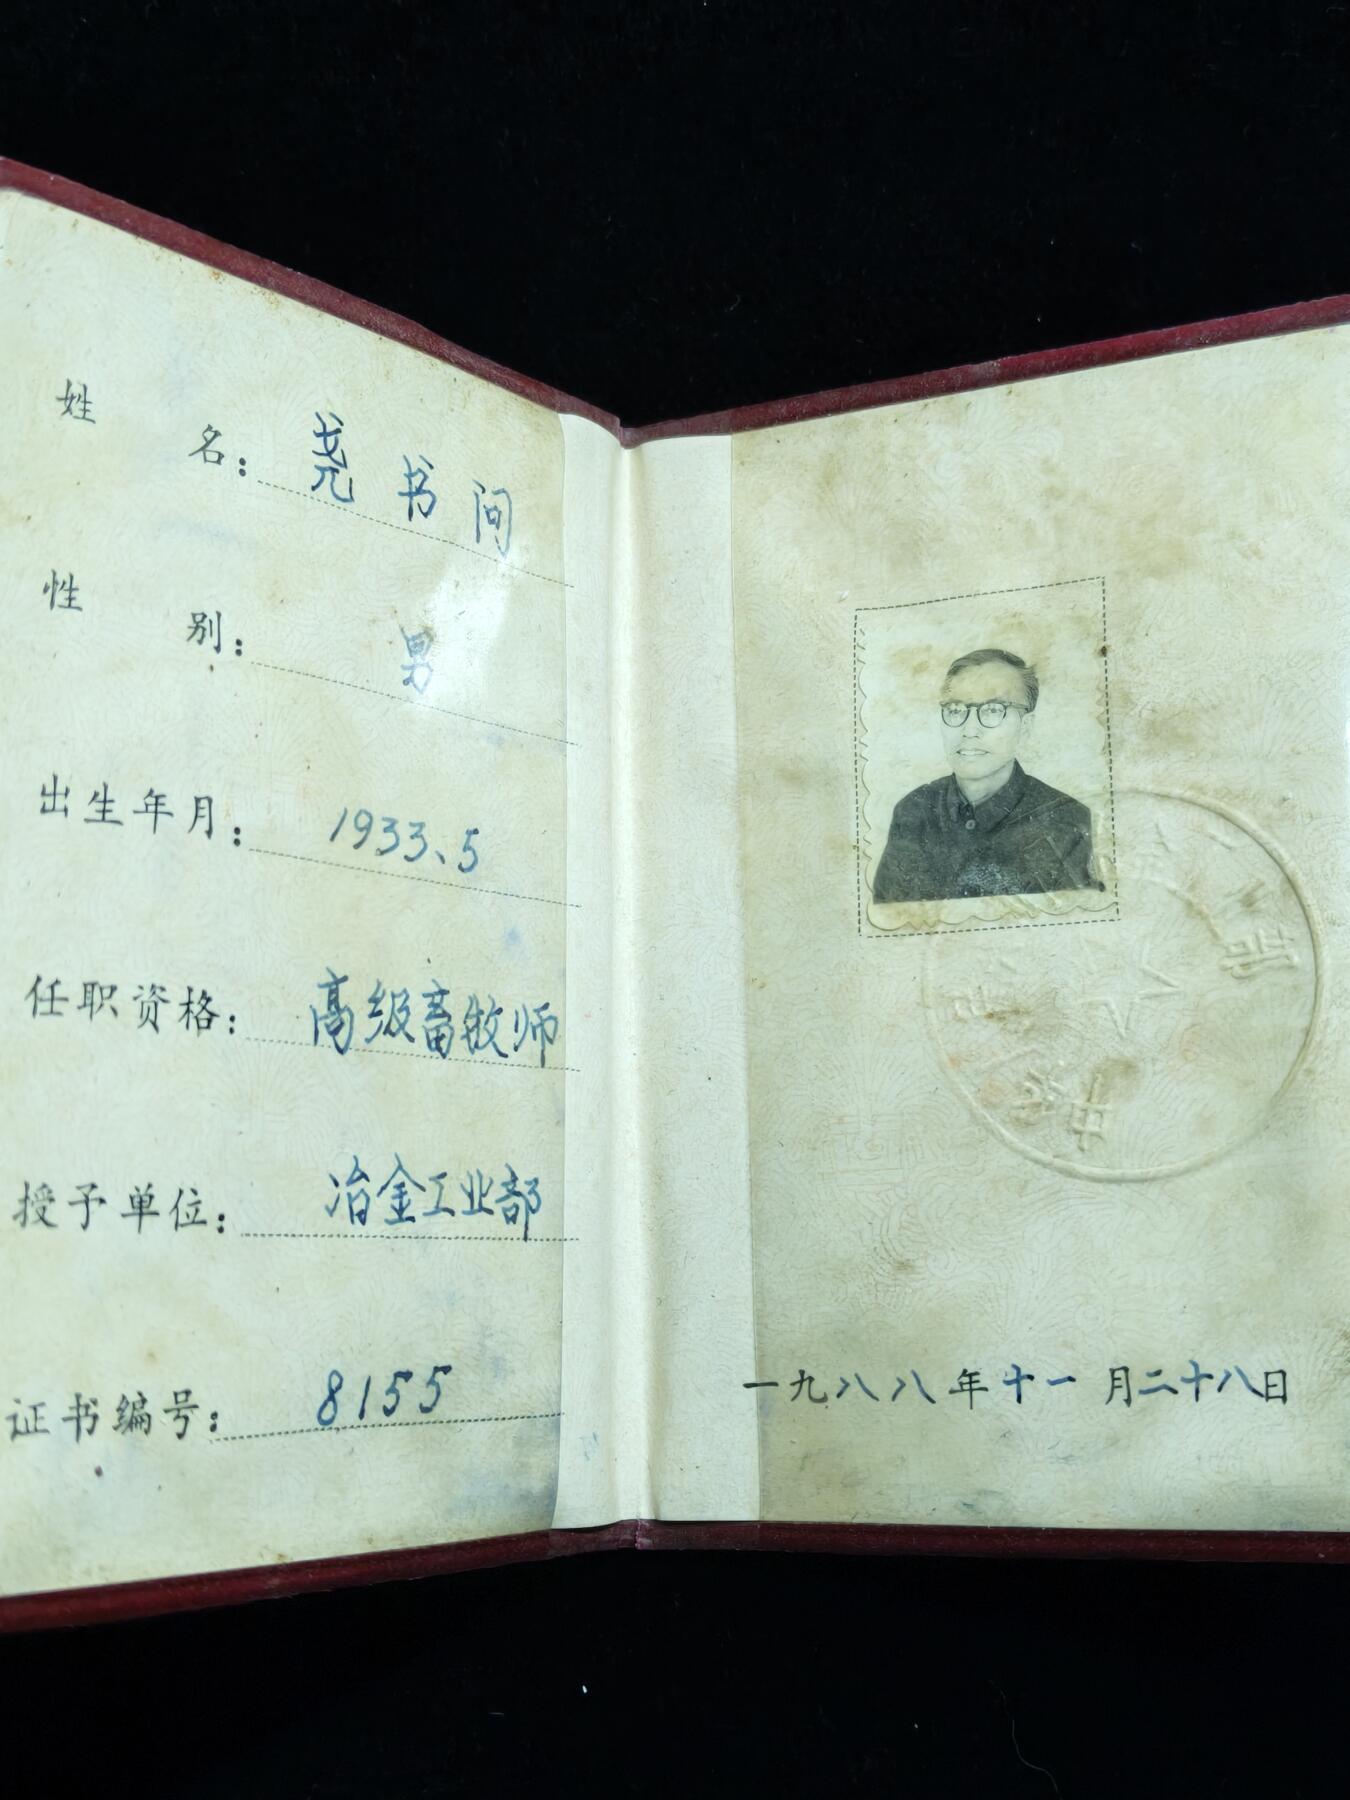 姓名：尧书问
性别：男
出生年月：1933、5
任职资格：高级畜牧师
授予单位：冶金工业部
证书编号：8155
一九八八年十一月二十八日